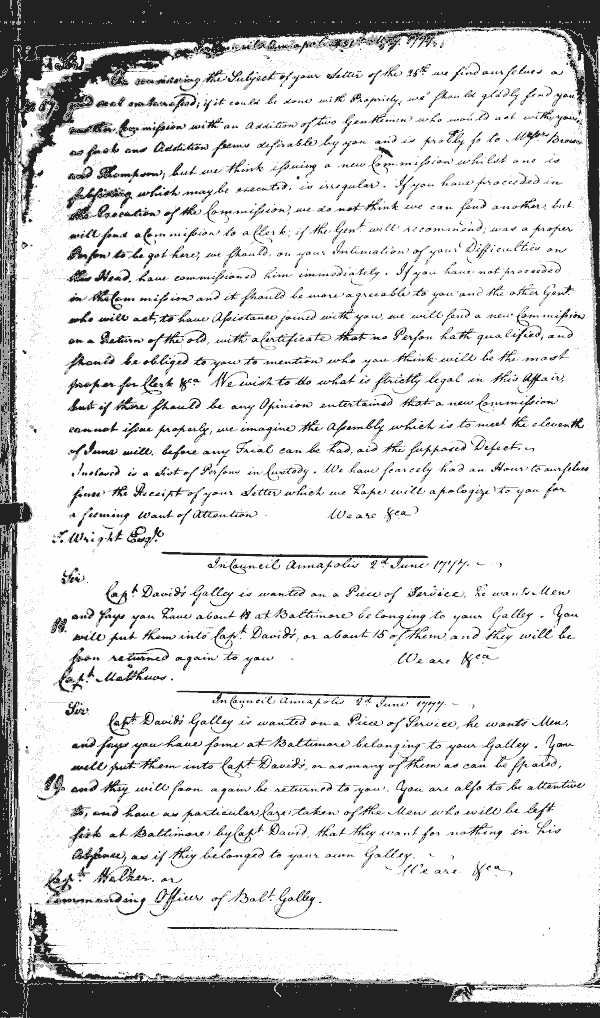 In Council Annapolis 31st May 1777.
Sir
On considering the Subject of your Letter of the 25th we find ourselves a
good deal embarrassed; if it could be done with Propriety, we should gladly send you
another Commission with an Addition of two Gentlemen who would act with you,
as such an Addition seems desirable by you and is prob'ly so to Messrs Brown
and Thompson, but we think issuing a new Commission whilst one is
subsisting which may be executed, is irregular. If you have proceeded in
the Execution of the Commission, we do not think we can send another, but
will send a Commission to a Clerk; if the Gent will recommend, was a proper
Person to be got here, we should, on your Intimation of your Difficulties on
this Head, have commissioned him immediately. If you have not proceeded
in the Commission and it should be more agreeable to you and the other Gent
who will act, to have Assistance joined with you, we will send a new Commission
on a Return of the old, with a Certificate that no Person hath qualified, and
should be obliged to you to mention who you think will be the most
proper for Clerk &ca We wish to do what is strictly legal in this Affair,
but if there should be any Opinion entertained that a new Commission
cannot issue properly, we imagine the Assembly which is to meet the eleventh
of June will, before any Trial can be had, aid the supposed Defect.
Inclosed is a List of Persons in Custody. We have scarcely had an Hour to ourselves
since the Receipt of your Letter which we hope will apologize to you for
a seeming want of Attention. We are &ca
T. Wright Esqr.
In Council Annapolis 2d June 1777.
Sir
Capt David's Galley is wanted on a Piece of Service, he wants Men
and says you have about at Baltimore belonging to your Galley. You
will put them into Capt David's, or about 15 of them and they will be
soon returned again to you. We are &ca
Capt. Matthews.
In Council Annapolis 2d June 1777.
Sir
Capt David's Galley is wanted on a Piece of Service, he wants Men,
and says you have some at Baltimore belonging to your Galley. You
will put them into Capt David's, or as many of them as can be spared,
and they will soon again be returned to you. You are also to be attentive
to, and have as particular Care taken of the Men who will be left
sick at Baltimore by Capt David, that they want for nothing in his
Absence, as if they belonged to your own Galley.
We are &ca
Capt. Walker. or
Commanding Officer of Balt. Galley.